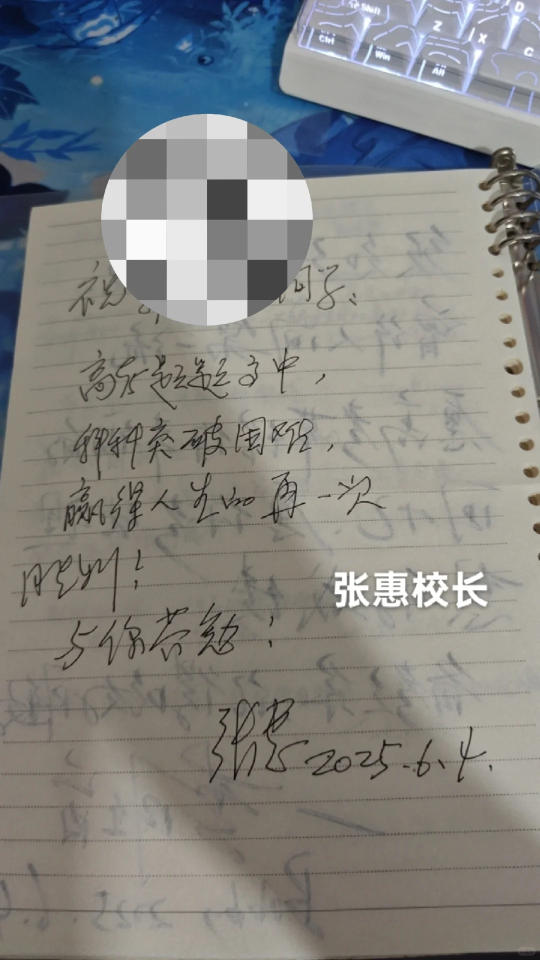 祝 同学:
高考题题高中,
种种突破困难,
赢得人生的再一次
胜利!
与你共勉!
张惠 2025.6.4.
张惠校长
Ctrl
Win
Alt
Shift
Z
X
C
D